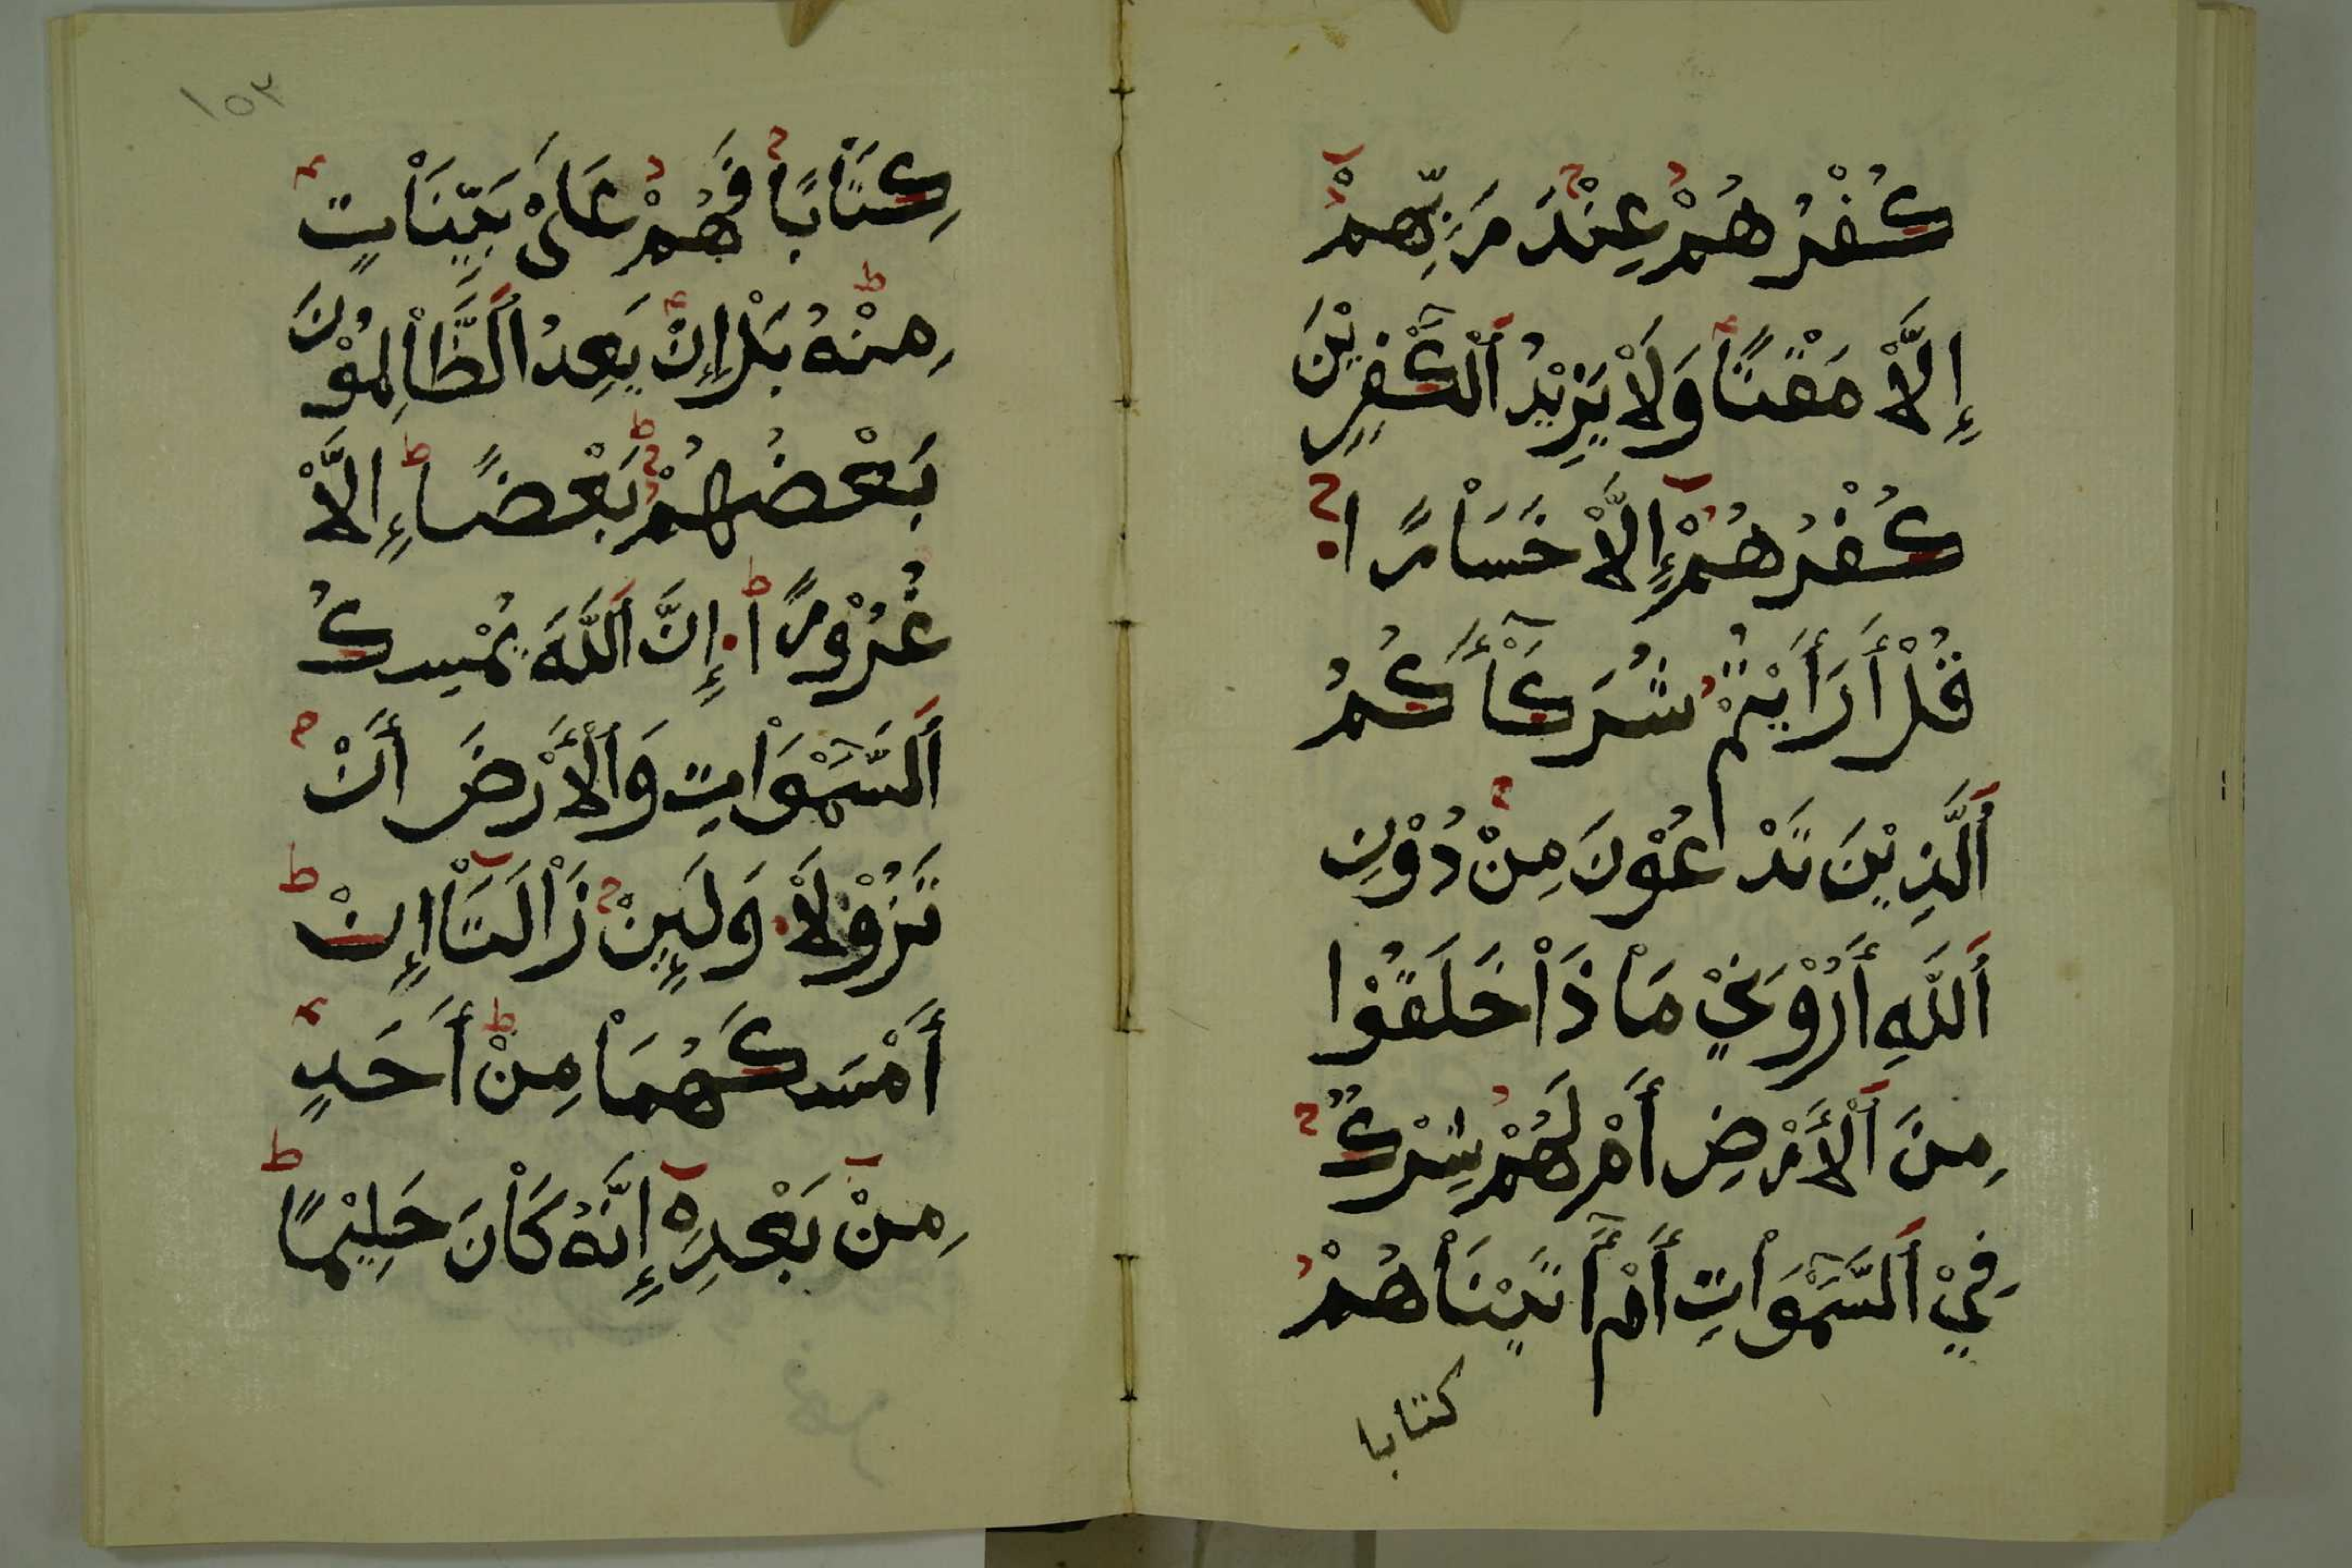 كُفْرُهُمْ عِنْدَ رَبِّهِمْ
إِلَّاْ مَقْتًا وَلَاْ يَزِيْدُ ٱلْكٰفِرِيْنَ
كُفْرُهُمْ إِلَّاْ خَسَاْرًا
قُلْ أَرَأَيْتُمْ شُرَكَاْأَكُمُ
ٱلَّذِيْنَ تَدْعُوْنَ مِنْ دُوْنِ
ٱللَّهِ أَرُوْنِيْ مَاْ ذَاْ خَلَقُوْا
مِنَ ٱلْأَرْضِ أَمْ لَهُمْ شِرْكٌ
فِيْ ٱلسَّمٰوَاْتِ أَمْ أٰتَيْنَاْهُمْ
كتابا
١٥٣
كِتَاْبًا فَهُمْ عَلَىْ بَيِّنَاْتٍ
مِنْهُ بَلْ إِنْ يَعِدُ ٱلظَّاْلِمُوْنَ
بَعْضُهُمْ بَعْضًا إِلَّاْ
غُرُوْرًا إِنَّ ٱللَّهَ يُمْسِكُ
ٱلسَّمٰوَاْتِ وَٱلْأَرْضَ أَنْ
تَزُوْلَاْ وَلَئِنْ زَاْلَتَاْ إِنْ
أَمْسَكَهُمَاْ مِنْ أَحَدٍ
مِنْ بَعْدِهِ إِنَّهُ كَاْنَ حَلِيْمًا